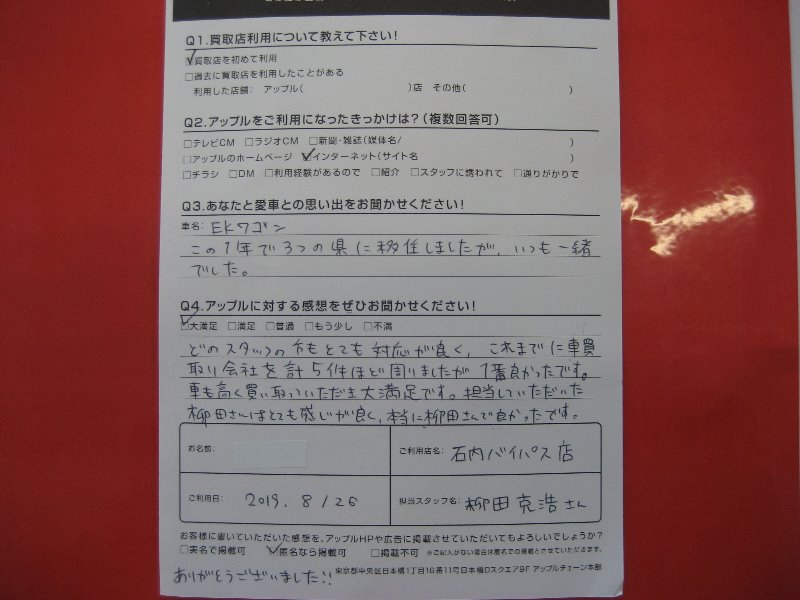 Q1.買取店利用について教えて下さい!
☑買取店を初めて利用
□過去に買取店を利用したことがある
利用した店舗: アップル( )店 その他( )
Q2.アップルをご利用になったきっかけは?(複数回答可)
□テレビCM □ラジオCM □新聞・雑誌(媒体名/ )
□アップルのホームページ ☑インターネット(サイト名 )
□チラシ □DM □利用経験があるので □紹介 □スタッフに誘われて □通りがかりで
Q3.あなたと愛車との思い出をお聞かせください!
車名: EKワゴン
この1年で3つの県に移住しましたが、いつも一緒
でした。
Q4.アップルに対する感想をぜひお聞かせください!
☑大満足 □満足 □普通 □もう少し □不満
どのスタッフの方もとても対応が良く、これまでに車買
取り会社を計5件ほど周りましたが1番良かったです。
車も高く買い取っていただき大満足です。担当していただいた
柳田さんはとても感じが良く、本当に柳田さんで良かったです。
お名前: ご利用店名: 石内バイパス店
ご利用日: 2019. 8/26 担当スタッフ名: 柳田克浩さん
お客様に書いていただいた感想を、アップルHPや広告に掲載させていただいてもよろしいでしょうか?
□実名で掲載可 ☑匿名なら掲載可 □掲載不可 ※ご記入がない場合は匿名での掲載とさせていただきます。
ありがとうございました!! 東京都中央区日本橋1丁目16番11号日本橋Dスクエア9F アップルチェーン本部